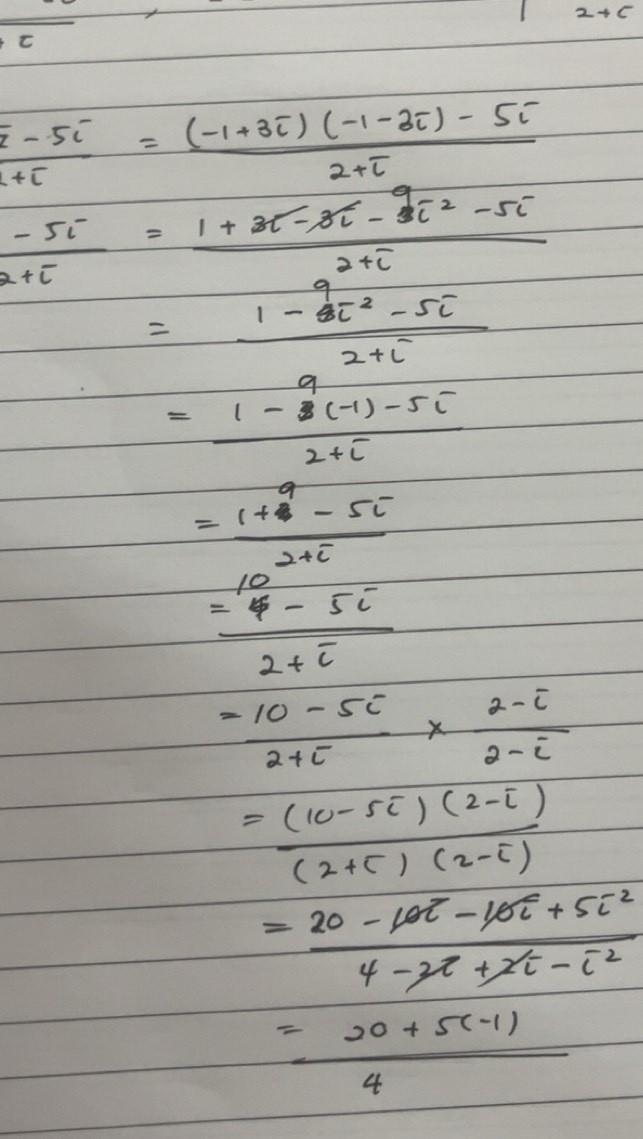 + i 2+i
z - 5i / 2+i = (-1+3i)(-1-3i) - 5i / 2+i
- 5i / 2+i = 1 + 3i - 3i - 9i² - 5i / 2+i
= 1 - 9i² - 5i / 2+i
= 1 - 9(-1) - 5i / 2+i
= 1+9 - 5i / 2+i
= 10 - 5i / 2+i
= 10 - 5i / 2+i × 2-i / 2-i
= (10-5i)(2-i) / (2+i)(2-i)
= 20 - 10i - 10i + 5i² / 4 - 2i + 2i - i²
= 20 + 5(-1) / 4